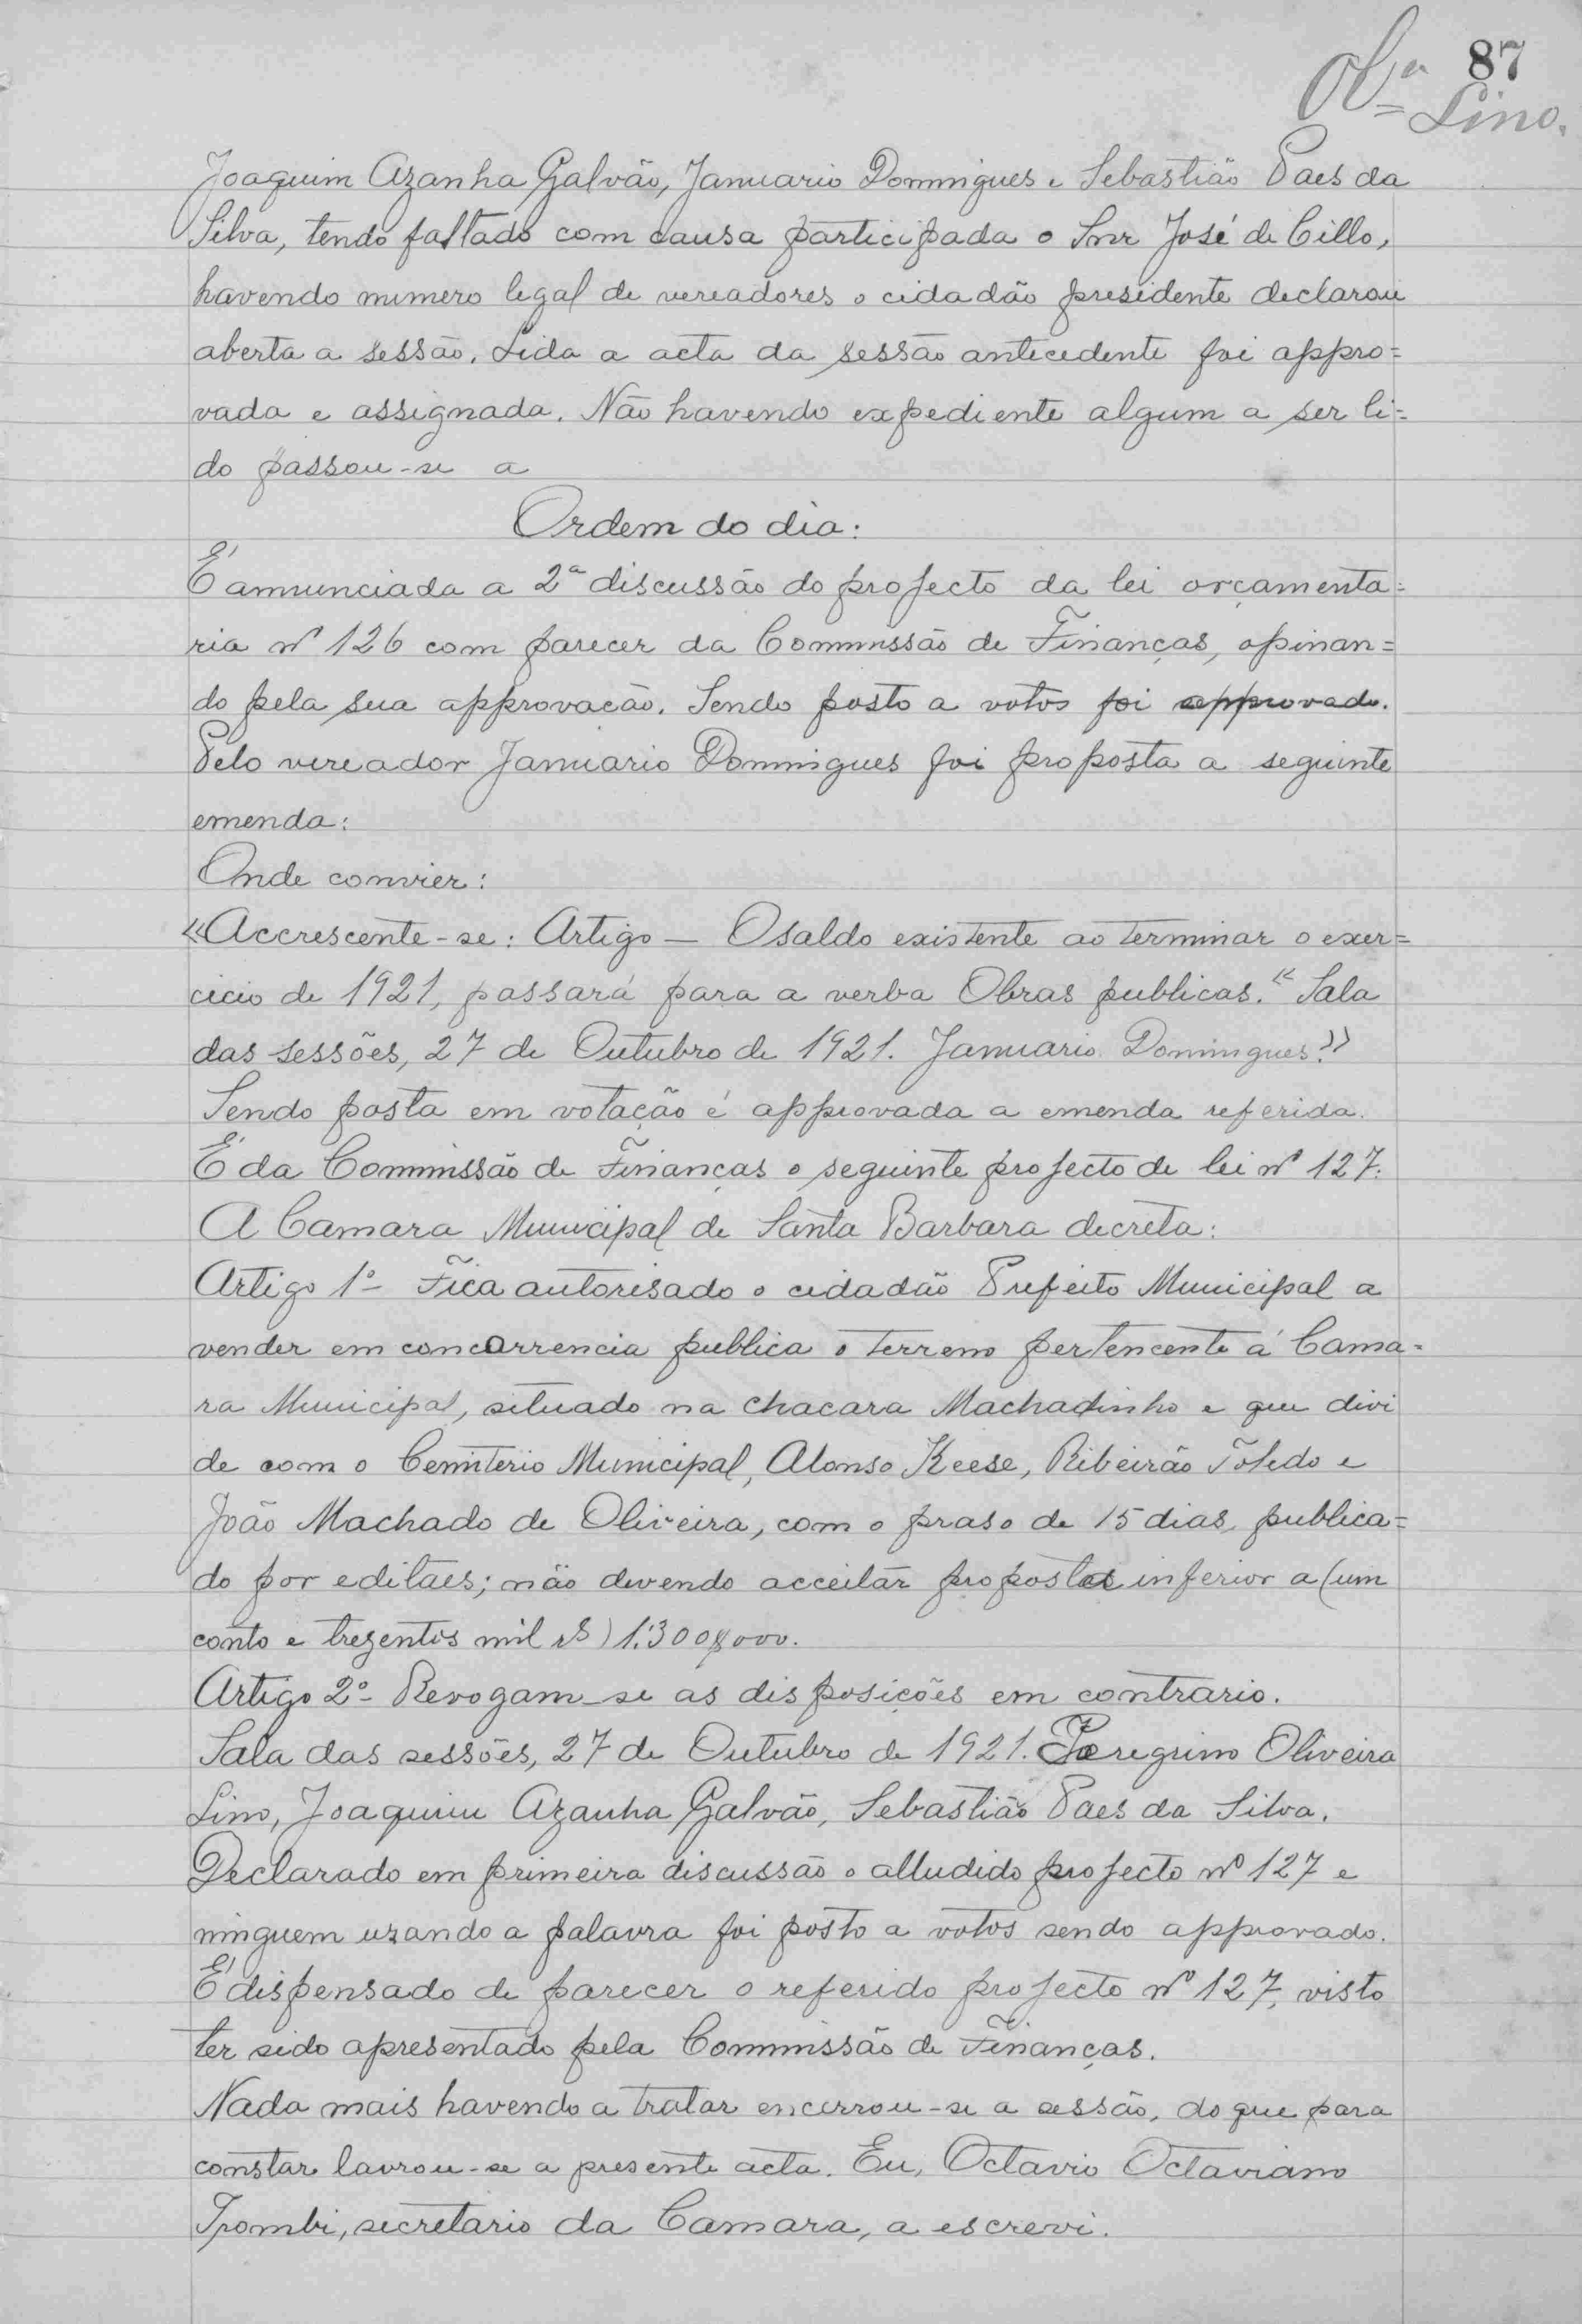 87
Olª Lino.
Joaquim Azanha Galvão, Januario Domingues e Sebastião Paes da
Silva, tendo faltado com causa participada o Snr José de Cillo,
havendo numero legal de vereadores o cidadão presidente declarou
aberta a sessão. Lida a acta da sessão antecedente foi appro=
vada e assignada. Não havendo expediente algum a ser li=
do passou-se a
Ordem do dia:
É annunciada a 2ª discussão do projecto da lei orçamenta=
ria nº 126 com parecer da Commissão de Finanças, opinan=
do pela sua approvacão. Sendo posto a votos foi approvado.
Pelo vereador Januario Domingues foi proposta a seguinte
emenda:
Onde convier:
«Accrescente-se: Artigo — O saldo existente ao terminar o exer=
cicio de 1921, passará para a verba Obras publicas.« Sala
das sessões, 27 de Outubro de 1921. Januario Domingues.»
Sendo posta em votação é approvada a emenda referida.
É da Commissão de Finanças o seguinte projecto de lei nº 127.
A Camara Municipal de Santa Barbara decreta:
Artigo 1º- Fica autorisado o cidadão Prefeito Municipal a
vender em concorrencia publica o terreno pertencente á Cama=
ra Municipal, situado na chacara Machadinho e que divi
de com o Cemiterio Municipal, Alonso Keese, Ribeirão Toledo e
João Machado de Oliveira, com o praso de 15 dias, publica=
do por editaes; não devendo acceitar proposta inferior a (um
conto e trezentos mil rs) 1:300$000.
Artigo 2º- Revogam-se as disposições em contrario.
Sala das sessões, 27 de Outubro de 1921. Peregrino Oliveira
Lino, Joaquim Azanha Galvão, Sebastião Paes da Silva.
Declarado em primeira discussão o alludido projecto nº 127 e
ninguem uzando a palavra foi posto a votos sendo approvado.
É dispensado de parecer o referido projecto nº 127, visto
ter sido apresentado pela Commissão de Finanças.
Nada mais havendo a tratar encerrou-se a sessão, do que para
constar lavrou-se a presente acta. Eu, Octavio Octaviano
Trombi, secretario da Camara, a escrevi.